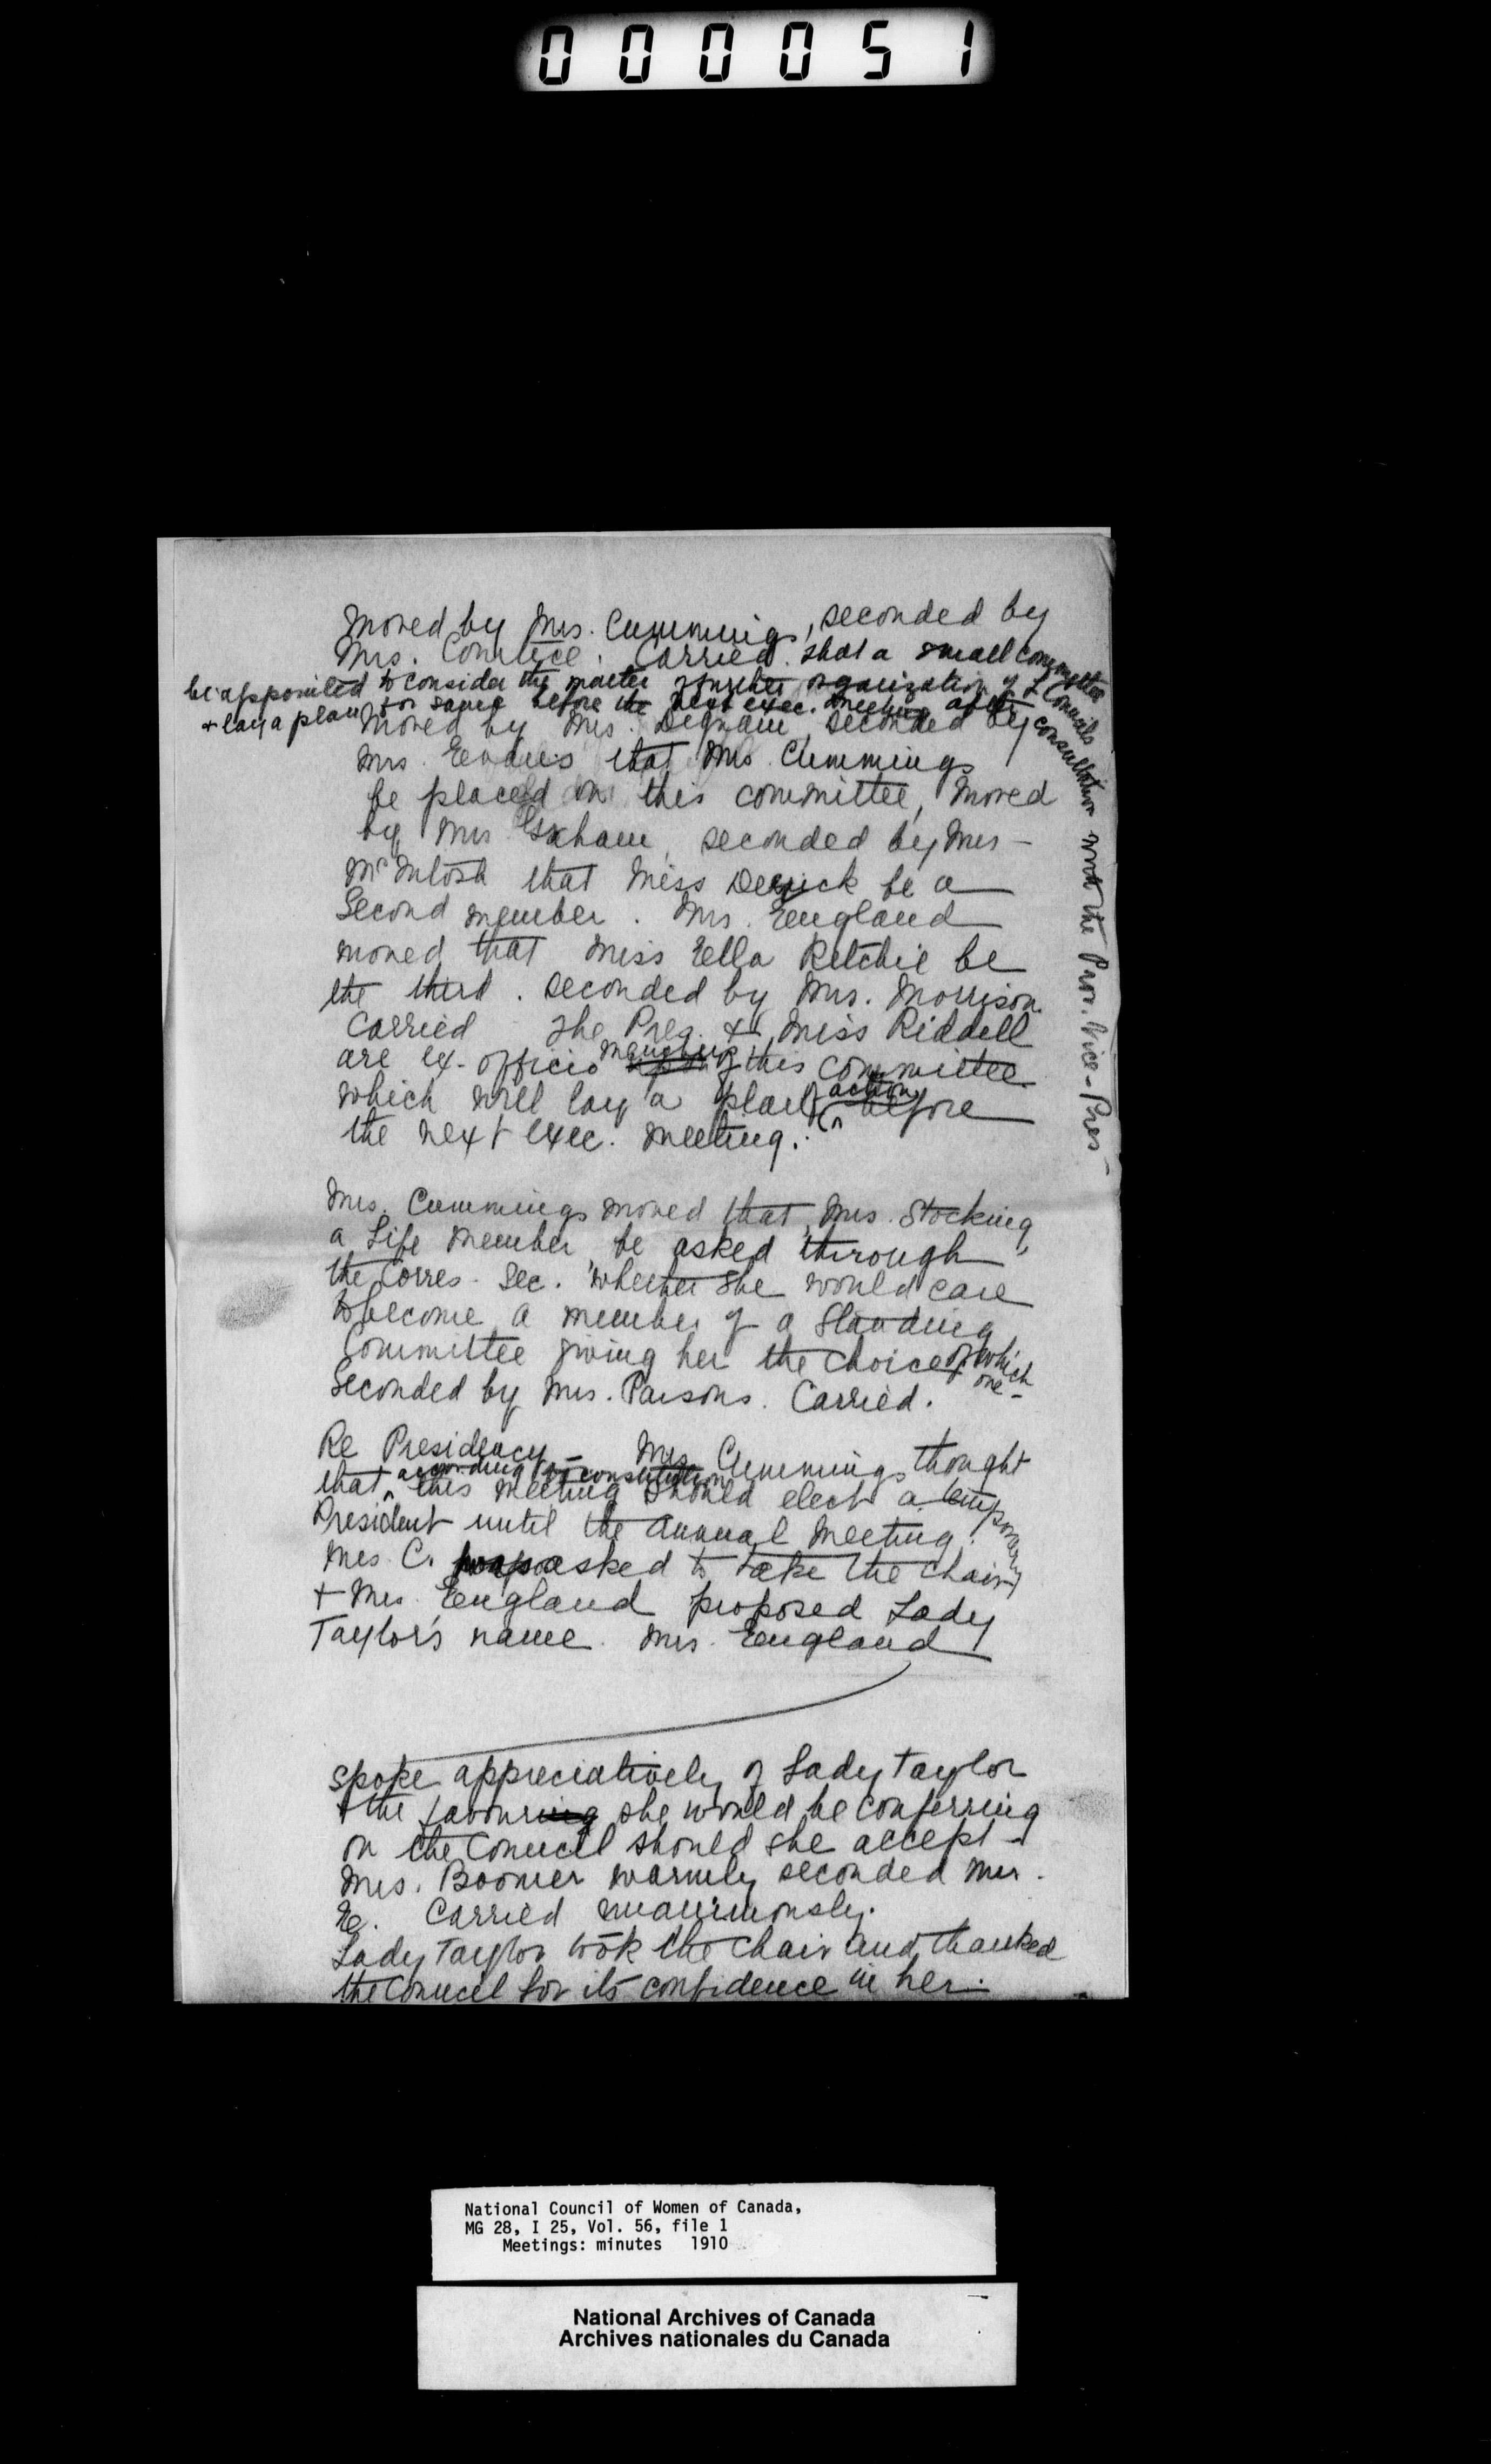 000051
Moved by Mrs. Cummings, seconded by
Mrs. Carried that a small committee
be appointed to consider the matter of further organization of L. Councils
& lay a plan for same before the next exec. meeting after consultation with the Prov. Vice-Pres-
Moved by Mrs. Dignam, seconded by
Mrs. that Mrs. Cummings
be placed on this committee, moved
by Mrs seconded by Mrs -
McIntosh that Miss Derrick be a
Second member. Mrs. England
moved that Miss Ella Ritchie be
the third. seconded by Mrs. Morrison.
Carried - The Pres. & Miss Riddell
are ex-officio members of this committee
which will lay a plan of action before
the next exec. meeting.
Mrs. Cummings moved that Mrs. Stocking,
a Life Member, be asked through
the Corres. Sec. whether she would care
to become a member of a Standing
Committee giving her the choice of which one-
Seconded by Mrs. Parsons. Carried.
Re Presidency - Mrs. Cummings thought
that according to constitution this meeting should elect a temporary
President until the Annual Meeting.
Mrs. C. asked to take the chair
& Mrs. England proposed Lady
Taylor's name. Mrs. England
spoke appreciatively of Lady Taylor
& the favouring she would be conferring
on the Council should she accept -
Mrs. Boomer warmly seconded Mrs.
E. Carried unanimously.
Lady Taylor took the chair and thanked
the Council for its confidence in her.
National Council of Women of Canada,
MG 28, I 25, Vol. 56, file 1
Meetings: minutes 1910
National Archives of Canada
Archives nationales du Canada